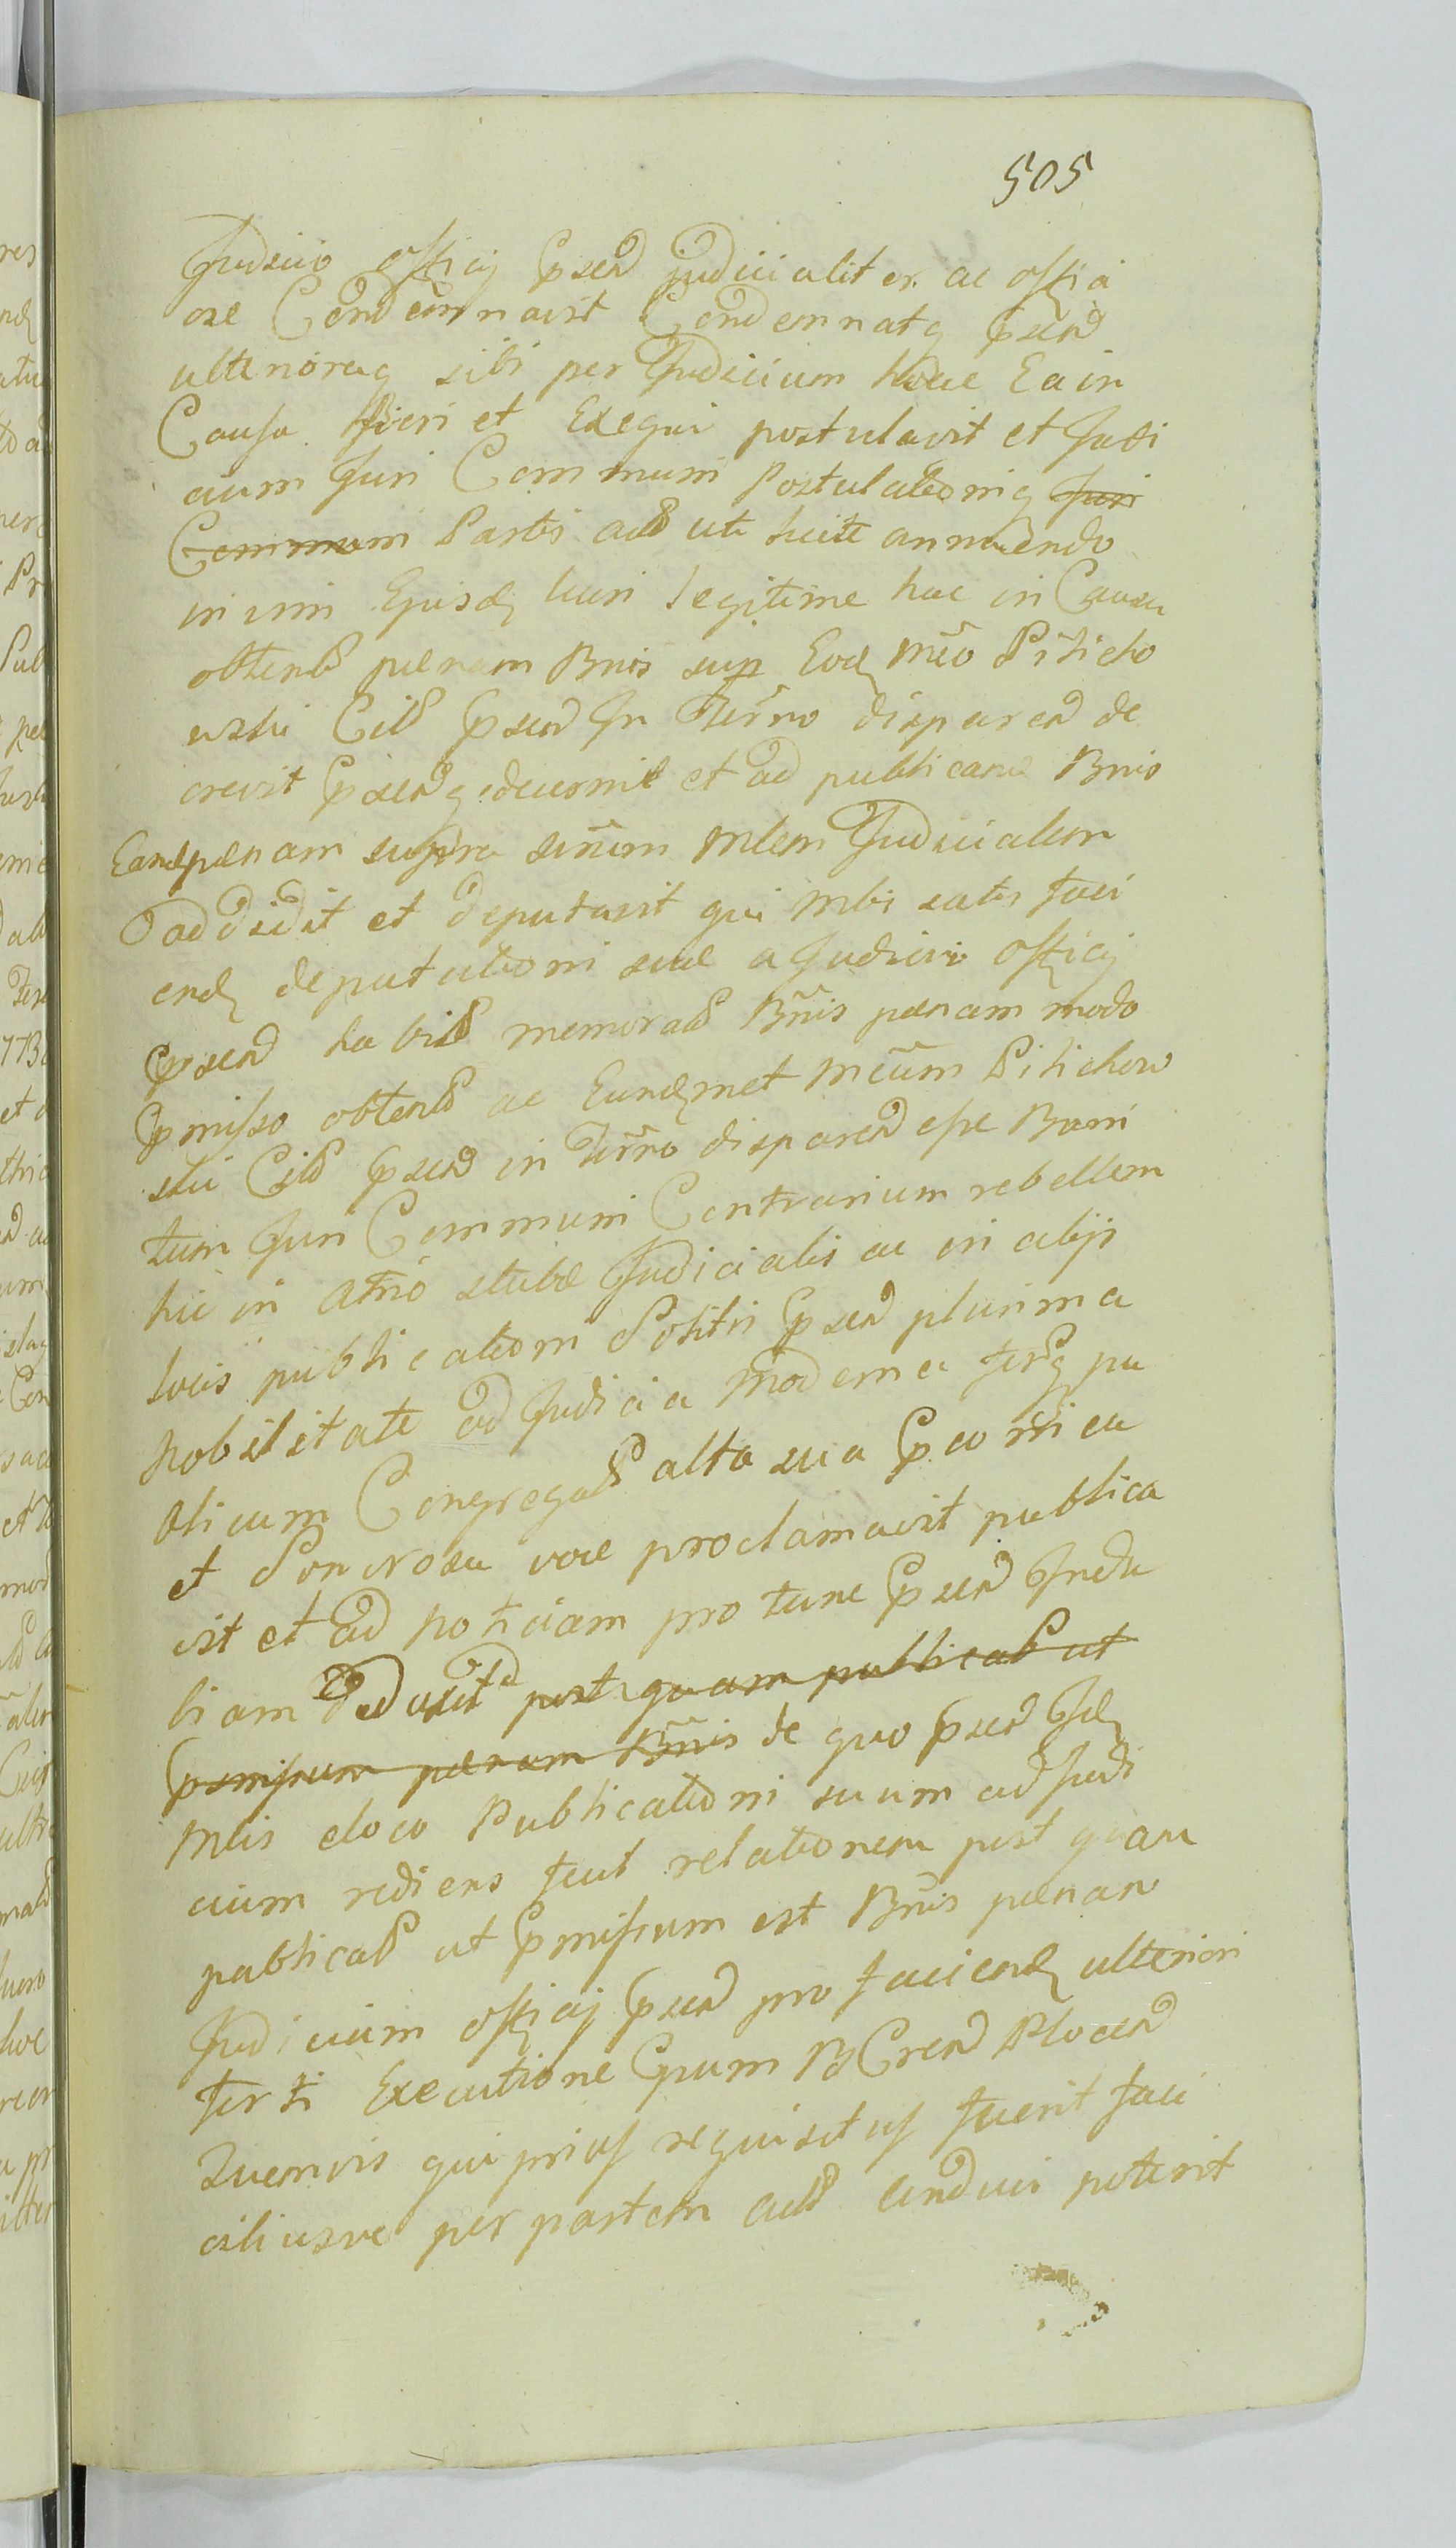 505
Judicio officij pseñ judicialiter ac officio
ose Condemnavit Condemnatq pseñ
ulterioraq sibi per Judicium hocce Ea in
Causa fieri et Exequi postulavit et Judi
cium Juri Communi Postulationiq Juri
Communi Partis act uti licite annuendo
in vim Ejusd lucri legitime hac in Causa
obtent pænam Bnis sup Eod Mco Pilicho
wski Cit pseñ In Termno disparen de
crevit pseñq decernit et ad publicand Bnis
Eand pænam supra srium Mlem Judicialem
addidit et deputavit qui Mlis satis faci
end deputationi suæ a Judicio officij
pseñ habit memorat Bnis pænam modo
pmisso obtent ac Eundmet Mcum Pilichow
ski Cit pseñ in Termno disparen esse Bani
tum Juri Communi Contrarium rebellem
hic in atrio stubæ Judicialis ac in alijs
locis publicationi Solitis pseñ plurima
Nobilitate ad Judicia moderna ferq pu
blicum Congregat alta sua pconica
et Sonorosa voce proclamavit publica
vit et ad notitiam pro tunc pseñ Indu
biam deduxit post quam publicat ut
pmissum pænam Bnis de quo pseñ Id
Mlis eloco Publicationi suum ad Judi
cium rediens fecit relationem post quam
publicat ut pmissum est Bnis pænam
Judicium officij pseñ pro faciend ulteriori
ferti Executione psum BCren Plocen
Quemvis qui prius requisitus fuerit faci
liusve per partem act conduci poterit